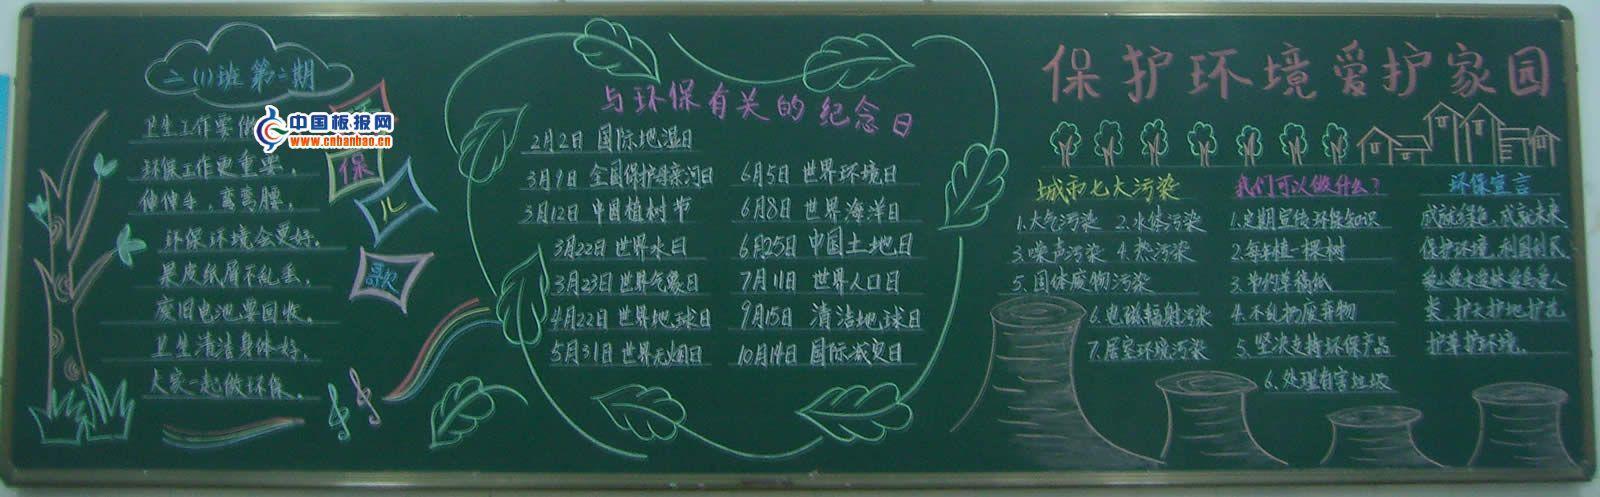 二(1)班第二期
中国板报网
www.cnbanbao.cn
环
保
儿
歌
卫生工作要做
环保工作更重要,
伸伸手,弯弯腰,
环保环境会更好。
果皮纸屑不乱丢,
废旧电池要回收。
卫生清洁身体好,
大家一起做环保。
与环保有关的纪念日
2月2日 国际地湿日
3月9日 全国保护母亲河日
3月12日 中国植树节
3月22日 世界水日
3月23日 世界气象日
4月22日 世界地球日
5月31日 世界无烟日
6月5日 世界环境日
6月8日 世界海洋日
6月25日 中国土地日
7月11日 世界人口日
9月15日 清洁地球日
10月14日 国际减灾日
保护环境爱护家园
城市七大污染
1.大气污染 2.水体污染
3.噪声污染 4.热污染
5.固体废物污染
6.电磁辐射污染
7.居室环境污染
我们可以做什么?
1.定期宣传环保知识
2.每年植一棵树
3.节约草稿纸
4.不乱扔废弃物
5.坚决支持环保产品
6.处理有害垃圾
环保宣言
成就绿色,成就未来
保护环境,利国利民
爱人类
类,护天护地护花
护草护环境。